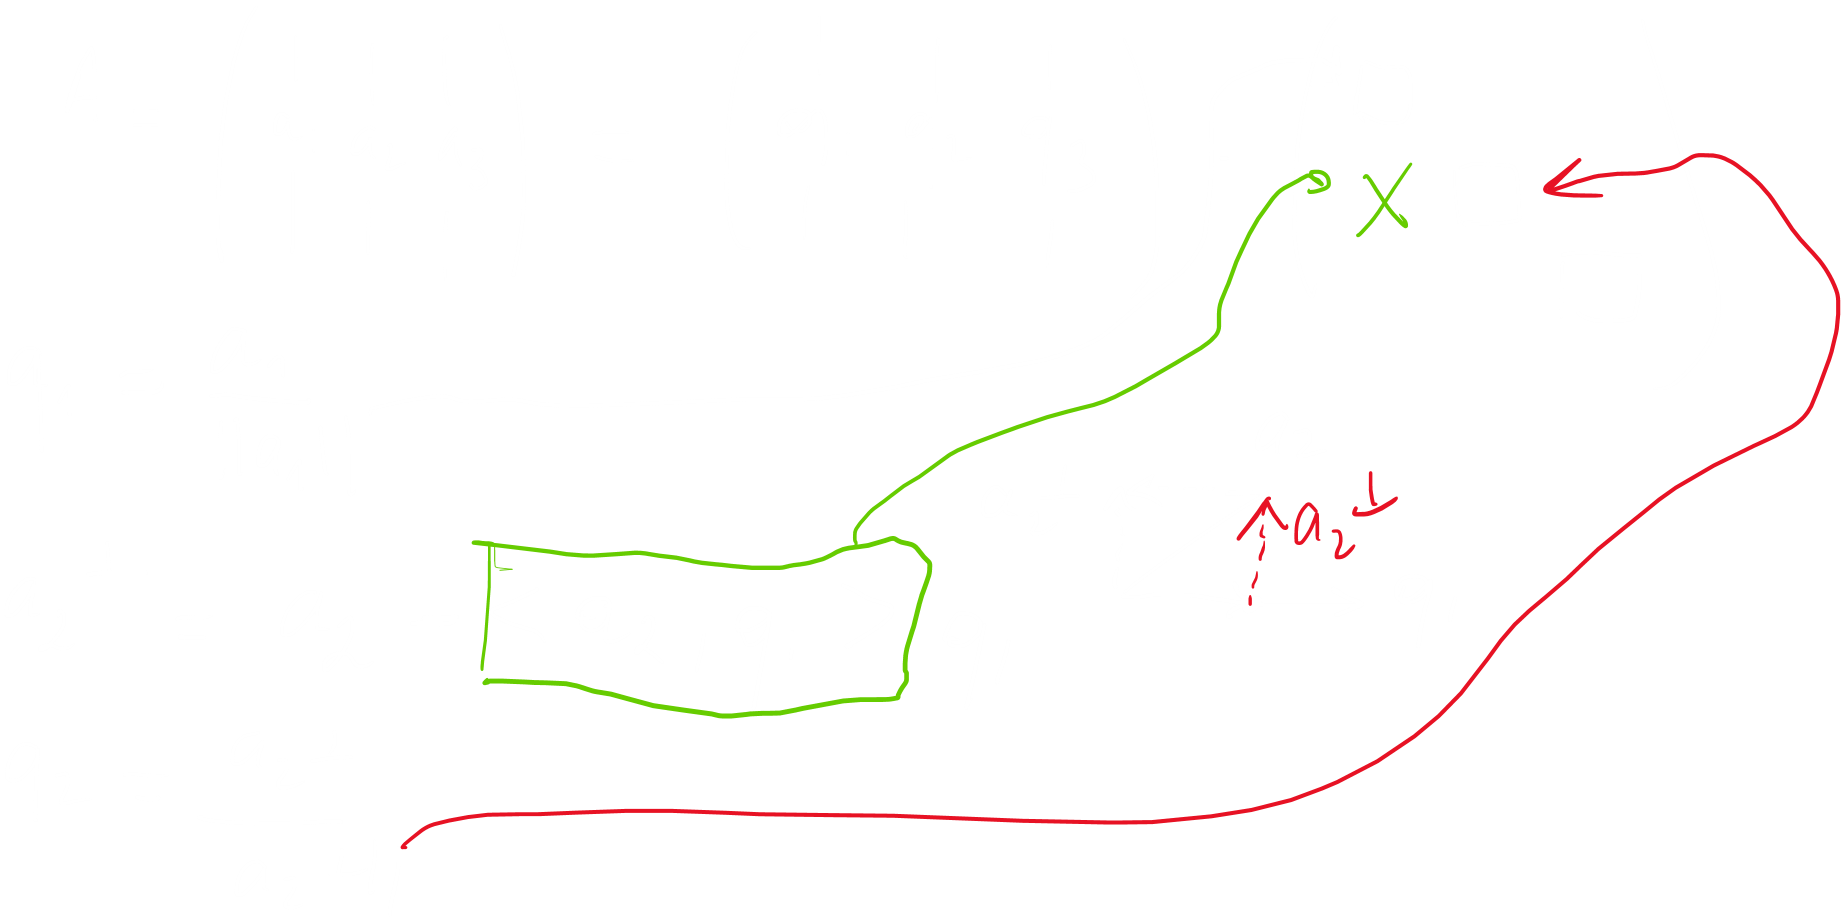 X
↑a₂↓